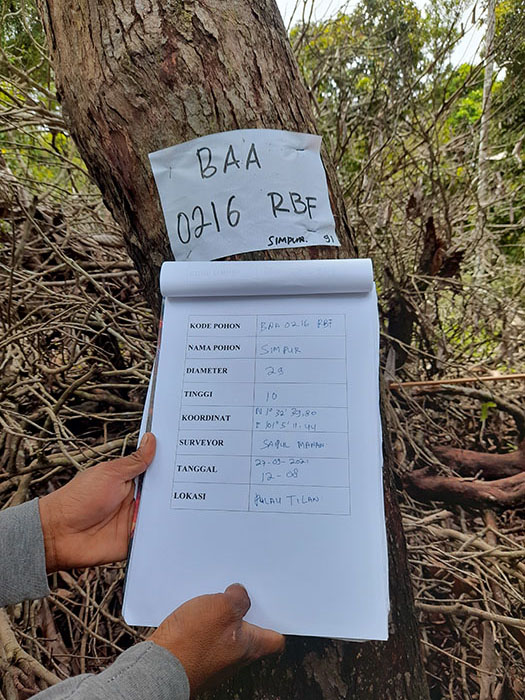 BAA
0216 RBF
SIMPUR. 91
KODE POHON BAA 0216 RBF
NAMA POHON SIMPUR
DIAMETER 29
TINGGI 10
KOORDINAT N 1° 32' 39,80
E 101° 5' 11.44
SURVEYOR
TANGGAL 27-09-2021
12-08
LOKASI PULAU TILAN